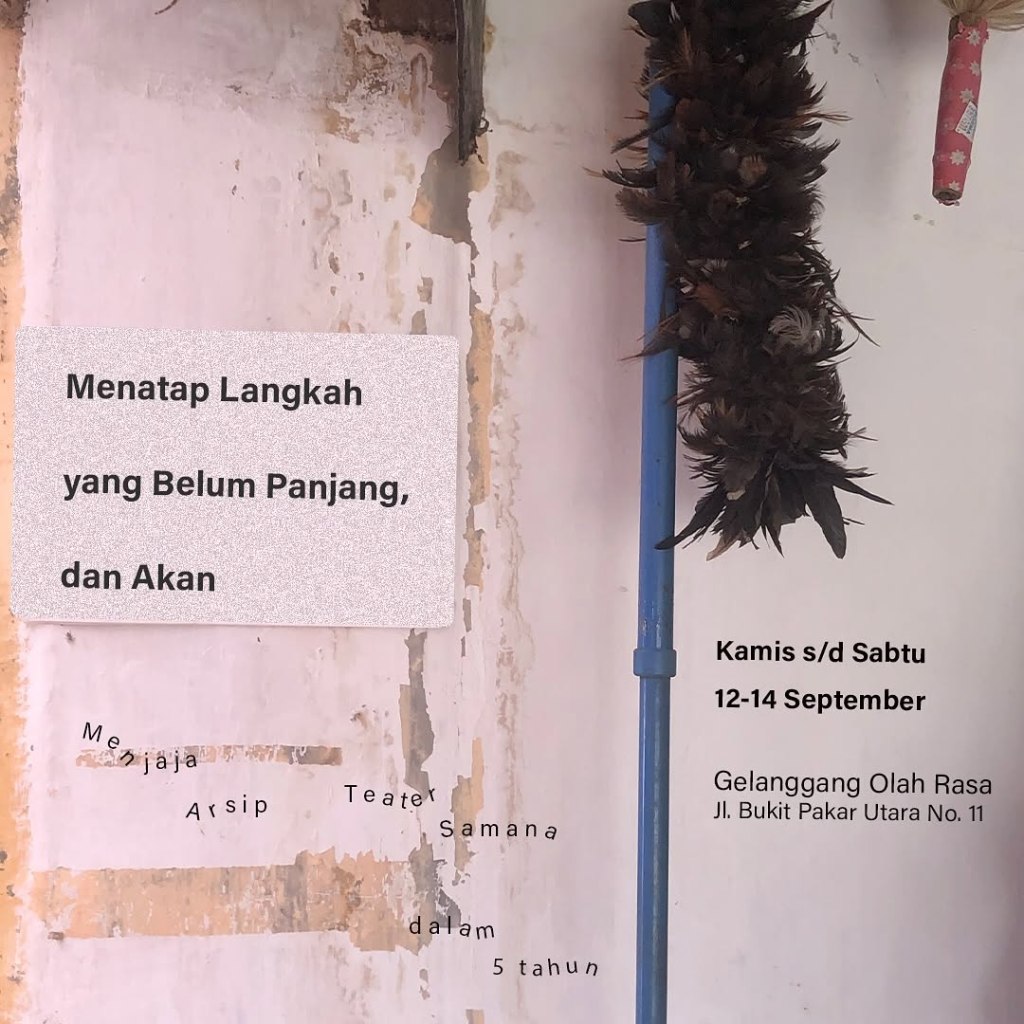 Menatap Langkah
yang Belum Panjang,
dan Akan
Menjaja
Arsip
Teater
Samana
dalam
5 tahun
Kamis s/d Sabtu
12-14 September
Gelanggang Olah Rasa
Jl. Bukit Pakar Utara No. 11